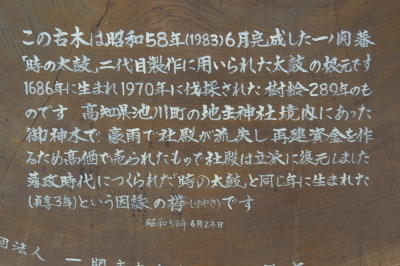 この古木は昭和58年(1983)6月完成した一ノ関藩
「時の太鼓」二代目製作に用いられた太鼓の根元です
1686年に生まれ1970年に伐採された樹齢289年のも
のです 高知県池川町の地主神社境内にあった
御神木で 豪雨で社殿が流失し再建資金を作
るため高価で売られたもので社殿は立派に復元しました
藩政時代につくられた「時の太鼓」と同じ年に生まれた
(貞享3年)という因縁の欅(けやき)です
昭和58年6月23日
団法人 一関